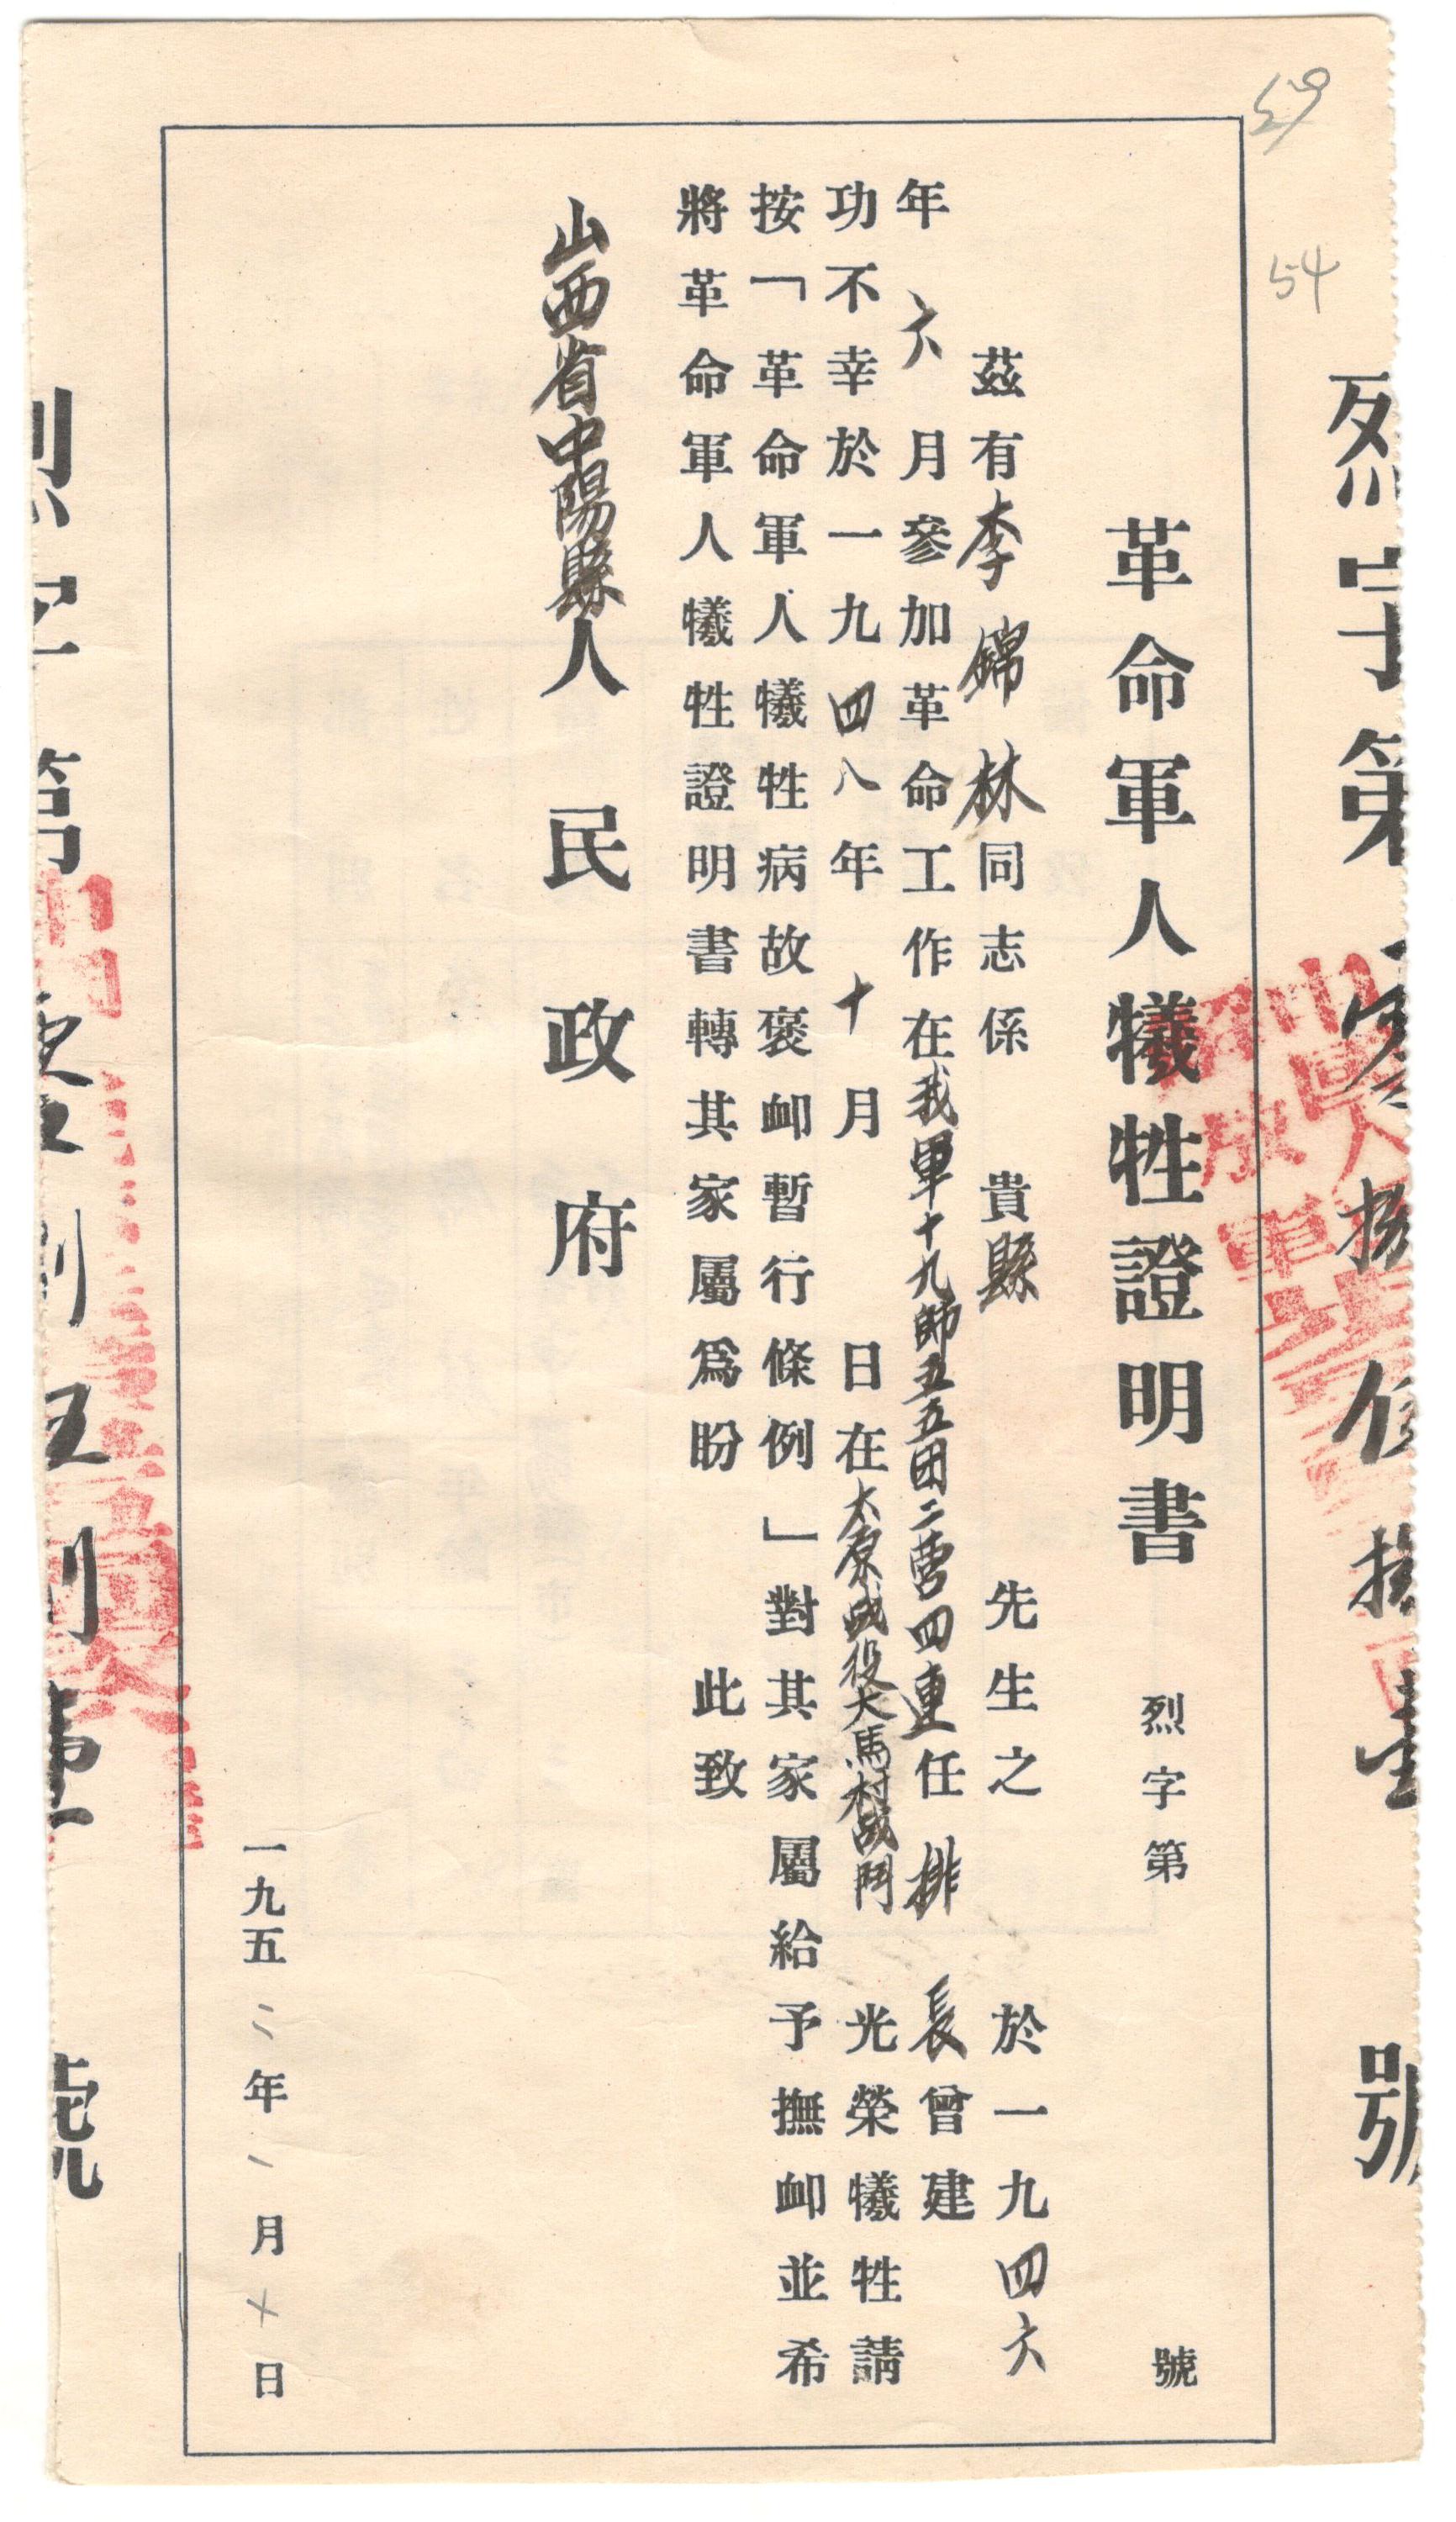 59
54
烈字第
號
革命軍人犧牲證明書 烈字第 號
茲有李錦林同志係 貴縣 先生之 於一九四六
年六月參加革命工作在我軍十九師五五团二营四連任排長曾建
功不幸於一九四八年十月 日在太原战役大馬村战鬥光榮犧牲請
按「革命軍人犧牲病故褒卹暫行條例」對其家屬給予撫卹並希
將革命軍人犧牲證明書轉其家屬爲盼 此致
山西省中陽縣人民政府
一九五二年一月十日
烈字第
號